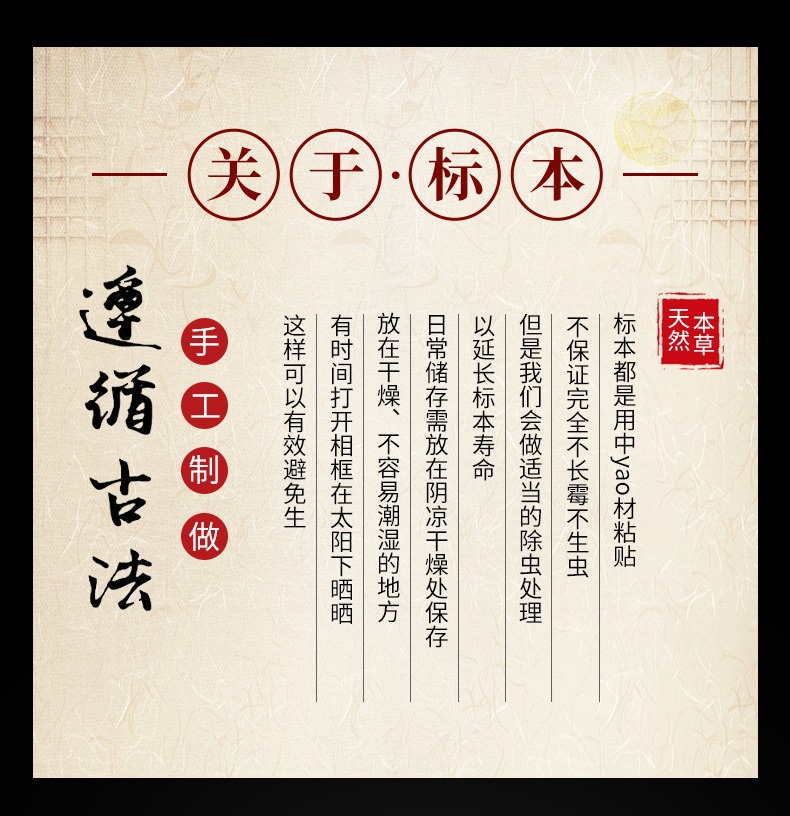 关于·标本
本草
天然
标本都是用中yao材粘贴
不保证完全不长霉不生虫
但是我们会做适当的除虫处理
以延长标本寿命
日常储存需放在阴凉干燥处保存
放在干燥、不容易潮湿的地方
有时间打开相框在太阳下晒晒
这样可以有效避免生
手工制做
遵循古法